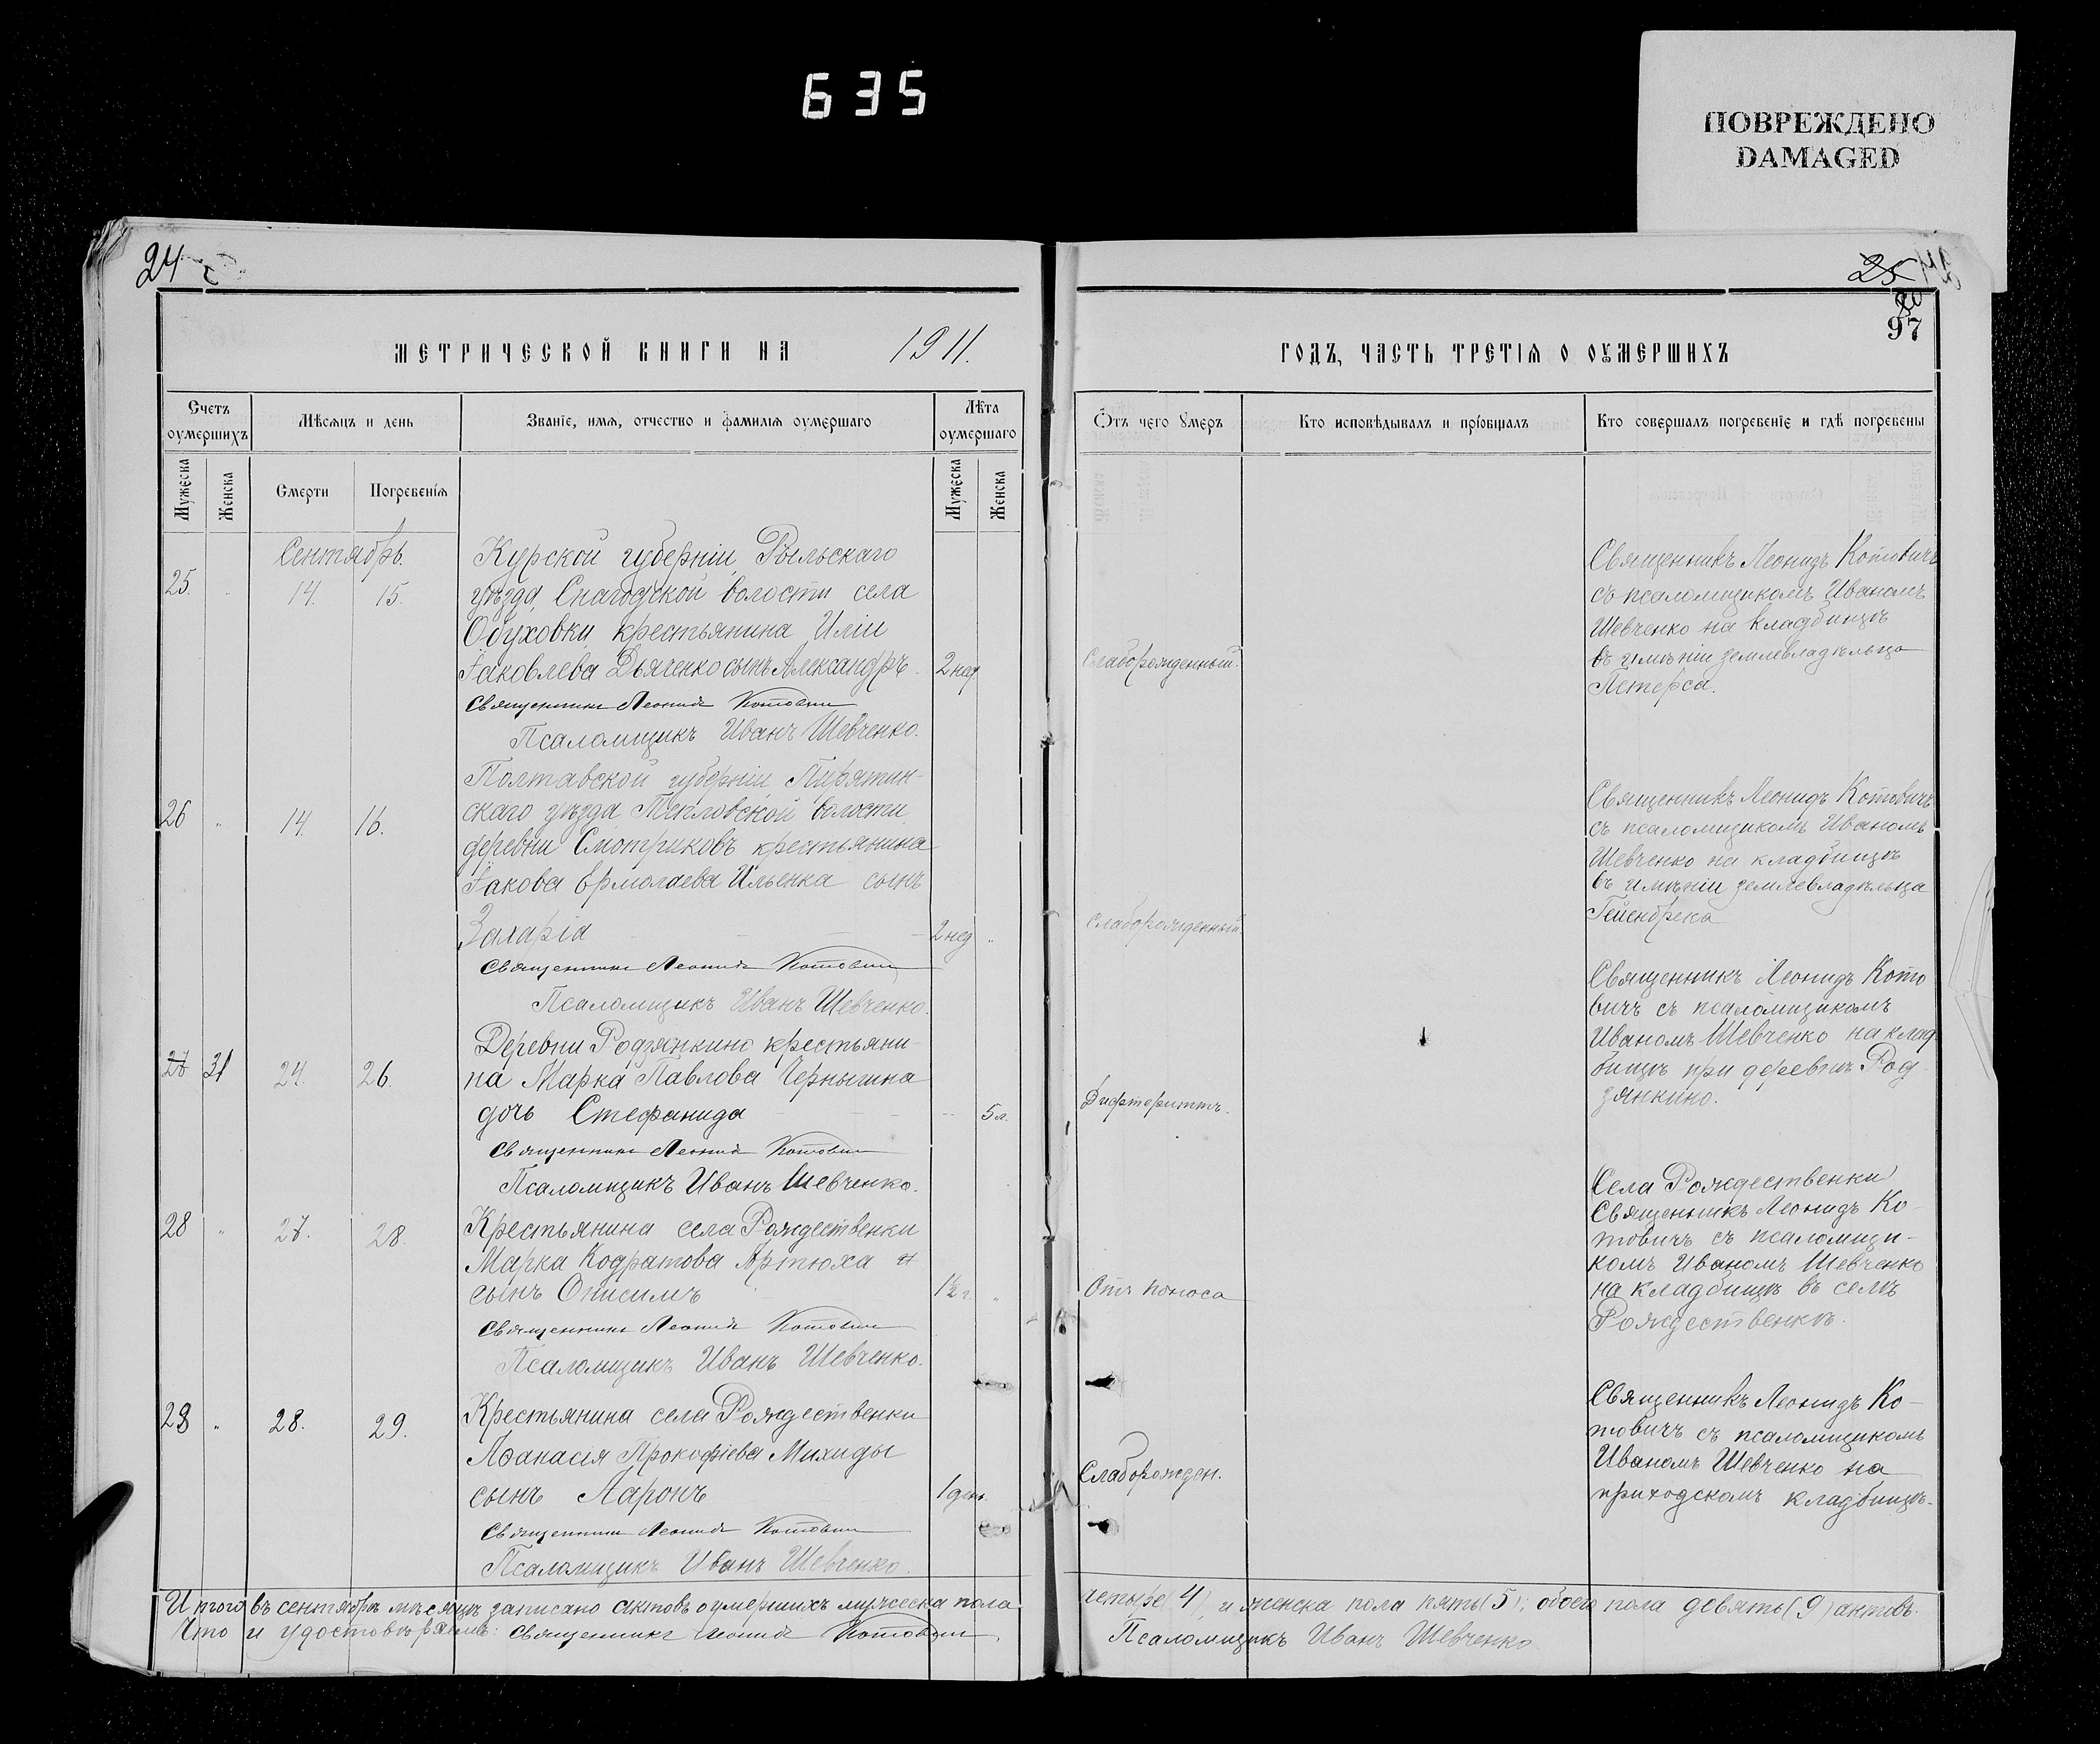 635
ПОВРЕЖДЕНО
DAMAGED
24
25
97
МЕТРИЧЕСКОЙ КНИГИ НА 1911.
ГОДЪ, ЧАСТЬ ТРЕТІЯ О ОУМЕРШИХЪ
Счетъ оумершихъ
Мѣсяцъ и день
Званіе, имя, отчество и фамилія оумершаго
Лѣта оумершаго
Отъ чего умеръ
Кто исповѣдывалъ и пріобщалъ
Кто совершалъ погребеніе и гдѣ погребены
Мужеска
Женска
Смерти
Погребенія
Мужеска
Женска
Сентябрь.
25. 14. 15.
Курской губерніи, Рыльскаго
уѣзда, Снагодской волости села
Обуховки, крестьянина Иліи
Іаковлева Дьяченко сынъ Александръ. 2 нед.
Священникъ Леонидъ Котовичъ
Псаломщикъ Иванъ Шевченко.
Слаборожденный.
Священникъ Леонидъ Котовичъ
съ псаломщикомъ Иваномъ
Шевченко на кладбищѣ
въ имѣніи землевладѣльца
Петерса.
26 14. 16.
Полтавской губерніи, Пирятин-
скаго уѣзда волости
деревни Смотриковъ крестьянина
Іакова Ермолаева Ильенка сынъ
Захарія 2 нед
Священникъ Леонидъ Котовичъ
Псаломщикъ Иванъ Шевченко.
Слаборожденный.
Священникъ Леонидъ Котовичъ
съ псаломщикомъ Иваномъ
Шевченко на кладбищѣ
въ имѣніи землевладѣльца
27 31 24. 26.
Деревни Родзянкино крестьяни-
на Марка Павлова
дочь Стефанида 5 л.
Священникъ Леонидъ Котовичъ
Псаломщикъ Иванъ Шевченко.
Дифтеритъ.
Священникъ Леонидъ Кото
вичъ съ псаломщикомъ
Иваномъ Шевченко на клад-
бищѣ при деревнѣ Род-
зянкино.
28 27. 28.
Крестьянина села Рождественки
Марка Кодратова Артюха
сынъ Онисимъ 1½ г.
Священникъ Леонидъ Котовичъ
Псаломщикъ Иванъ Шевченко.
Отъ поноса
Села Рождественки
Священникъ Леонидъ Ко-
товичъ съ псаломщи-
комъ Иваномъ Шевченко
на кладбищѣ въ селѣ
Рождественкѣ.
28. 29.
Крестьянина села Рождественки
Аѳанасія Прокофіева Михиды
сынъ Ааронъ 1 день.
Священникъ Леонидъ Котовичъ
Псаломщикъ Иванъ Шевченко.
Слаборожден.
Священникъ Леонидъ Ко-
товичъ съ псаломщикомъ
Иваномъ Шевченко на
приходскомъ кладбищѣ.
Итого въ сентябрѣ мѣсяцѣ записано актовъ о умершихъ мужеска пола четыре (4), и женска пола пять (5); обоего пола девять (9) актовъ.
Что и удостовѣряемъ: Священникъ Леонидъ Котовичъ, Псаломщикъ Иванъ Шевченко.